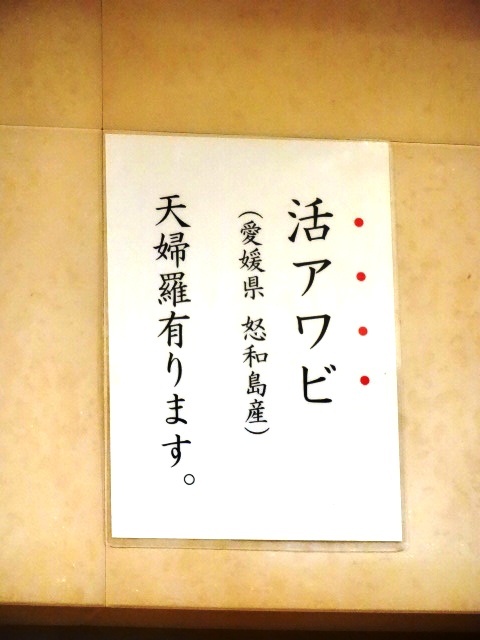 活アワビ
（愛媛県 怒和島産）
天婦羅有ります。